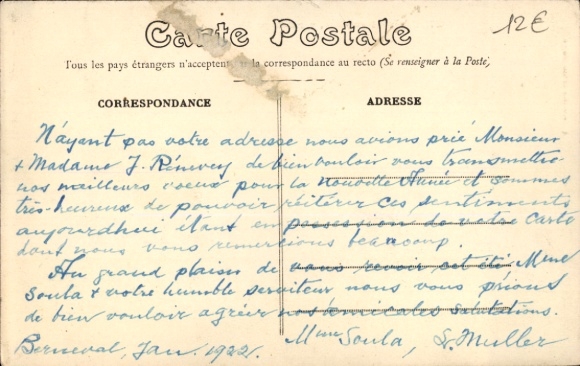 12€
Carte Postale
Tous les pays étrangers n'acceptent la correspondance au recto (Se renseigner à la Poste)
CORRESPONDANCE
ADRESSE
N'ayant pas votre adresse nous avions prié Monsieur
& Madame J. de bien vouloir vous transmettre
nos meilleurs voeux pour la nouvelle Année et sommes
très-heureux de pouvoir réitérer ces sentiments
aujourdhui étant en possession de votre carte
dont nous vous remercions beaucoup.
Au grand plaisir de vous revoir cet été Mme
Soula & votre humble serviteur nous vous prions
de bien vouloir agréer nos amicales salutations.
Berneval, Jan. 1922. Mme Soula, Muller